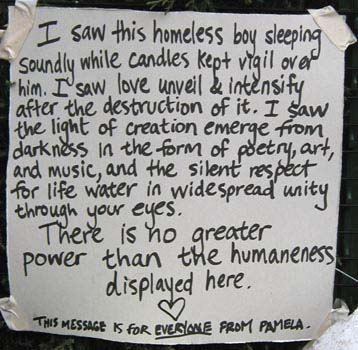 I saw this homeless boy sleeping
soundly while candles kept vigil over
him. I saw love unveil & intensify
after the destruction of it. I saw
the light of creation emerge from
darkness in the form of poetry, art,
and music, and the silent respect
for life water in widespread unity
through your eyes.
There is no greater
power than the humaneness
displayed here.
THIS MESSAGE IS FOR EVERYONE FROM PAMELA.